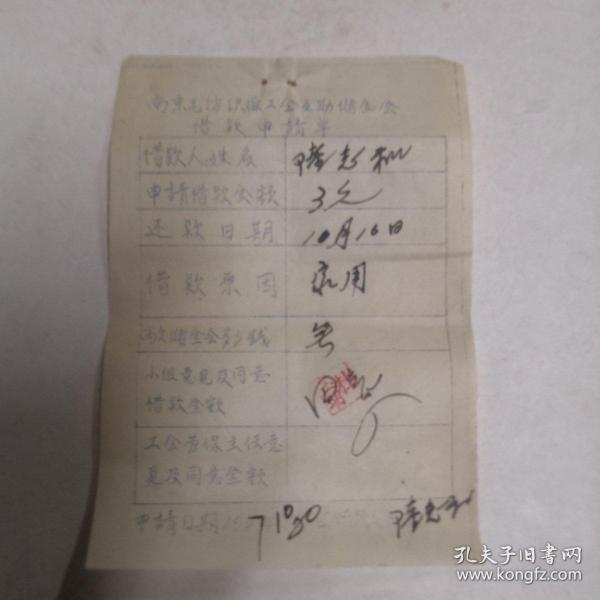 南京毛纺织厂工会互助储金会
借款申請单
借款人姓名
申請借款金额 3元
还款日期 10月10日
借款原因 家用
欠储金会多少钱 无
小组意見及同意
借款金额 同意
工会劳保主任意
見及同意金额
申請日期
孔夫子旧书网
www.kongfz.com